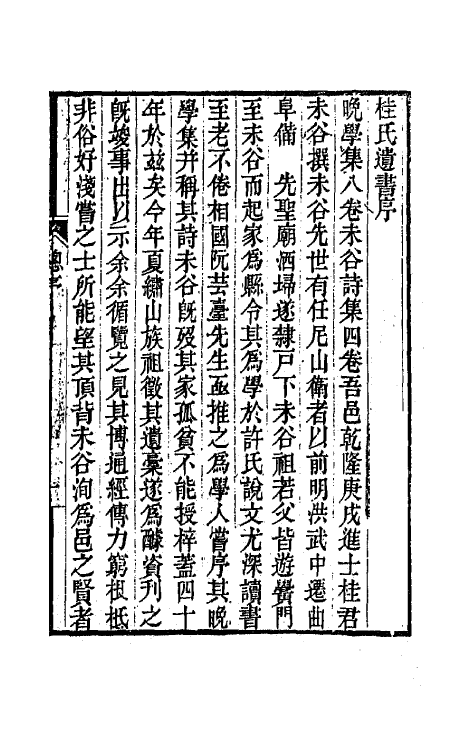 桂氏遺書序
晚學集八卷未谷詩集四卷吾邑乾隆庚戌進士桂君
未谷撰未谷先世有任尼山衛者以前明洪武中遷曲
阜備　先聖廟洒埽遂隸戸下未谷祖若父皆遊黌門
至未谷而起家爲縣令其爲學於許氏說文尤深讀書
至老不倦相國阮芸臺先生亟推之爲學人嘗序其晚
學集并稱其詩未谷旣歿其家孤貧不能授梓蓋四十
年於玆矣今年夏繡山族祖徵其遺稾遂爲醵資刋之
旣竣事出以示余余循覽之見其博通經傳力窮根柢
非俗好淺嘗之士所能望其項背未谷洵爲邑之賢者
總序